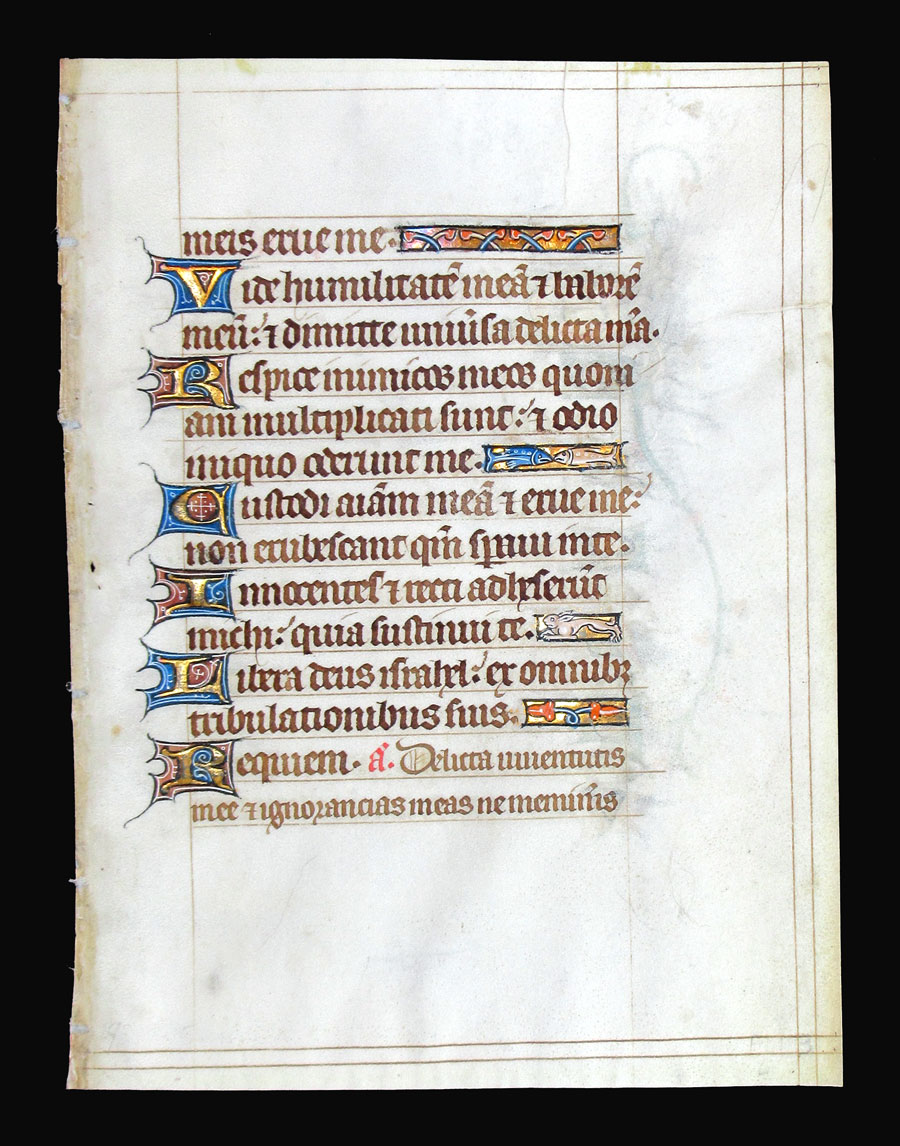 meis erue me.
Vide humilitatē meā ⁊ laborē
meū: ⁊ dimitte uniūsa delicta m̄a.
Respice inimicos meos quoni
am multiplicati sunt: ⁊ odio
iniquo oderunt me.
Custodi aīam meā ⁊ erue me:
non erubescant qm̄ speraui in te.
Innocentes ⁊ recti adheserūt
michi: quia sustinui te.
Libera deus israhel: ex omnibꝫ
tribulationibus suis.
Requiem. a̅. Delicta iuuentutis
mee ⁊ ignorancias meas ne memin̄is